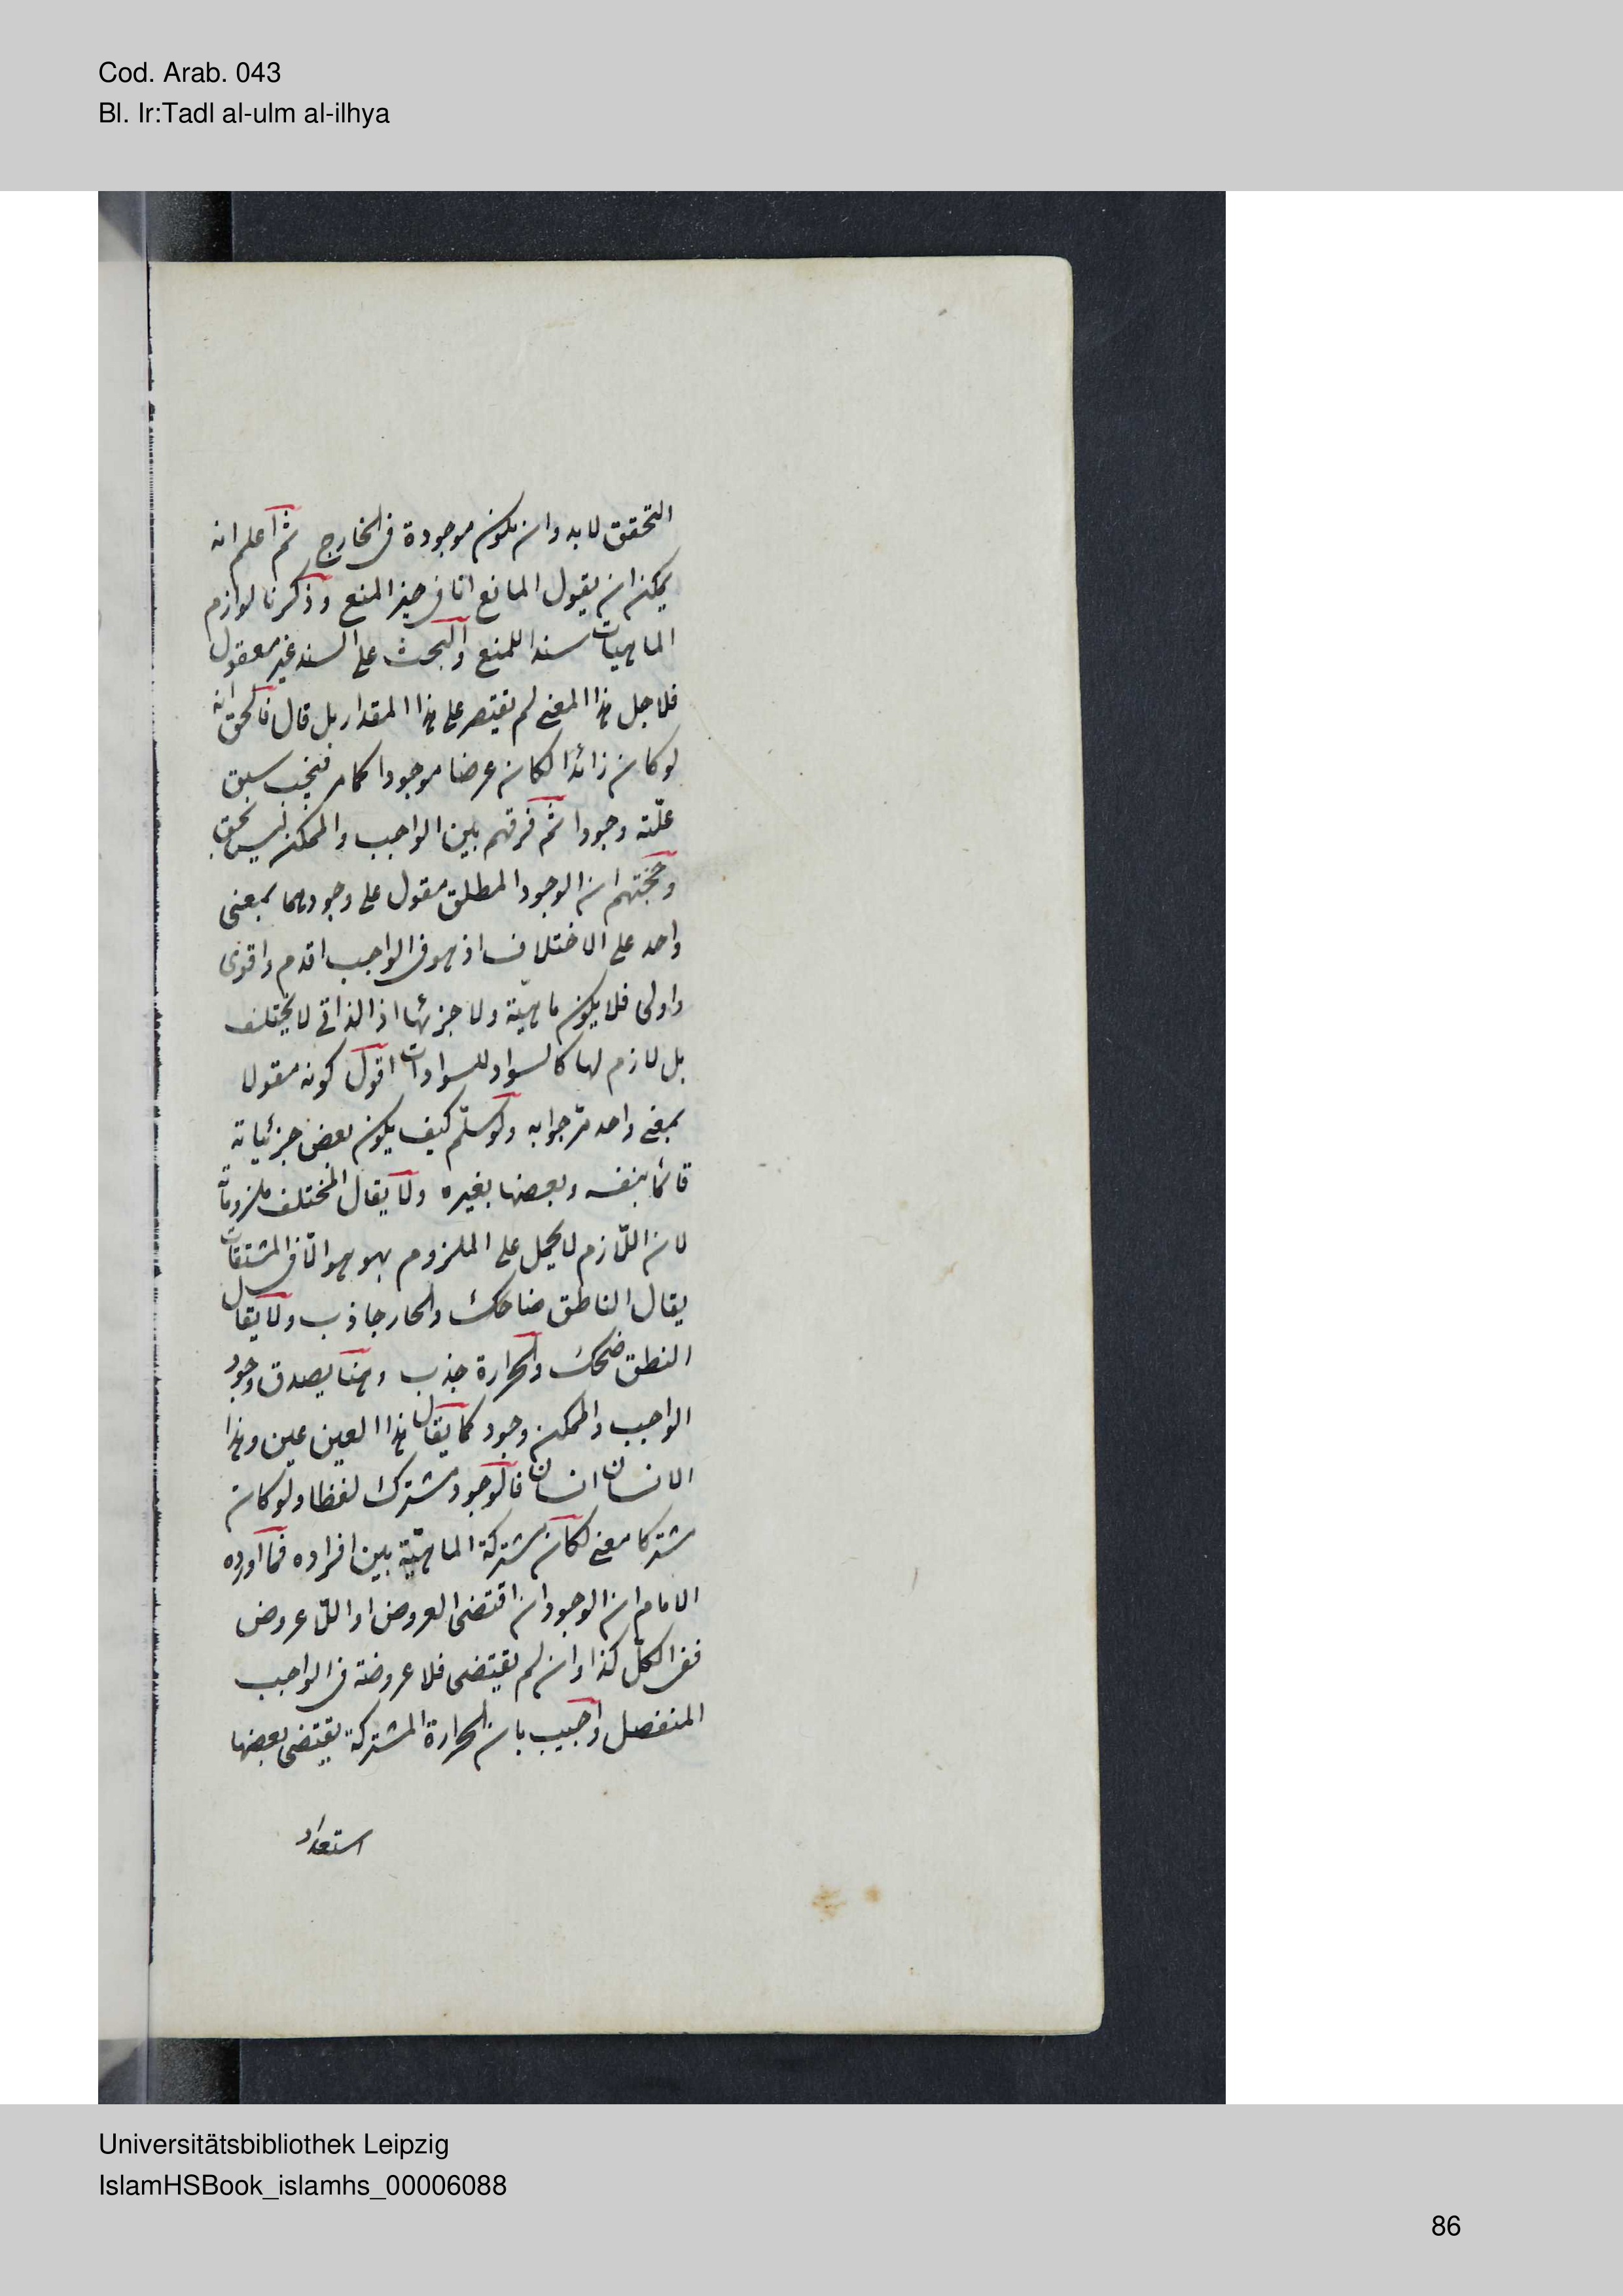 Cod. Arab. 043
Bl. Ir:Tadl al-ulm al-ilhya
التحقق لابد وان يكون موجودة فى الخارج ثم اعلم انه
يمكن ان يقول المانع انا فى حيز المنع وذكرنا لوازم
الماهيات سندا للمنع والبحث على السند غير معقول
فلاجل هذا المعنى لم يقتصر على هذا المقدار بل قال فالحق انه
لو كان زائدا لكان عرضا موجودا كما مر فيجب سبق
علّته وجودا ثم فرقهم بين الواجب والممكن ليس بحق
وحجتهم ان الوجود المطلق مقول على وجوديهما بمعنى
واحد على الاختلاف اذ هو فى الواجب اقدم واقوى
واولى فلا يكون ماهيّة ولا جزئها اذ الذاتى لا يختلف
بل لازم لها كالسواد للسوادات اقول كونه مقولا
بمعنى واحد مرّ جوابه ولو سلّم كيف يكون بعض جزئياته
قائما بنفسه وبعضها بغيره ولا يقال المختلف ملزوماته
لان اللازم لا يحمل على الملزوم بهو هو الّا فى المشتقات
يقال الناطق ضاحك والحار جاذب ولا يقال
النطق ضحك والحرارة جذب وهنا يصدق وجود
الواجب والممكن وجود كما يقال هذا العين عين وهذا
الانسان انسان فالوجود مشترك لفظا ولو كان
مشتركا معنى لكان مشتركة الماهيّة بين افراده فما اورده
الامام ان الوجود ان اقتضى العروض او اللّا عروض
ففى الكلّ كذا وان لم يقتضى فلا عروضه فى الواجب
المنفصل واجيب بان الحرارة المشتركة يقتضى بعضها
استعداد
Universitätsbibliothek Leipzig
IslamHSBook_islamhs_00006088
86